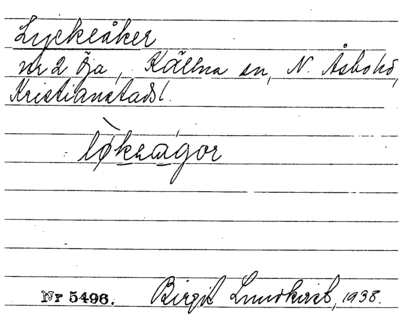 Lyckeåker
nr 2 Öja, Källna sn, N. Åsbo hd,
Kristianstads l.
lø̀kæágor
Nr 5496. Birgit Lundkvist, 1938.